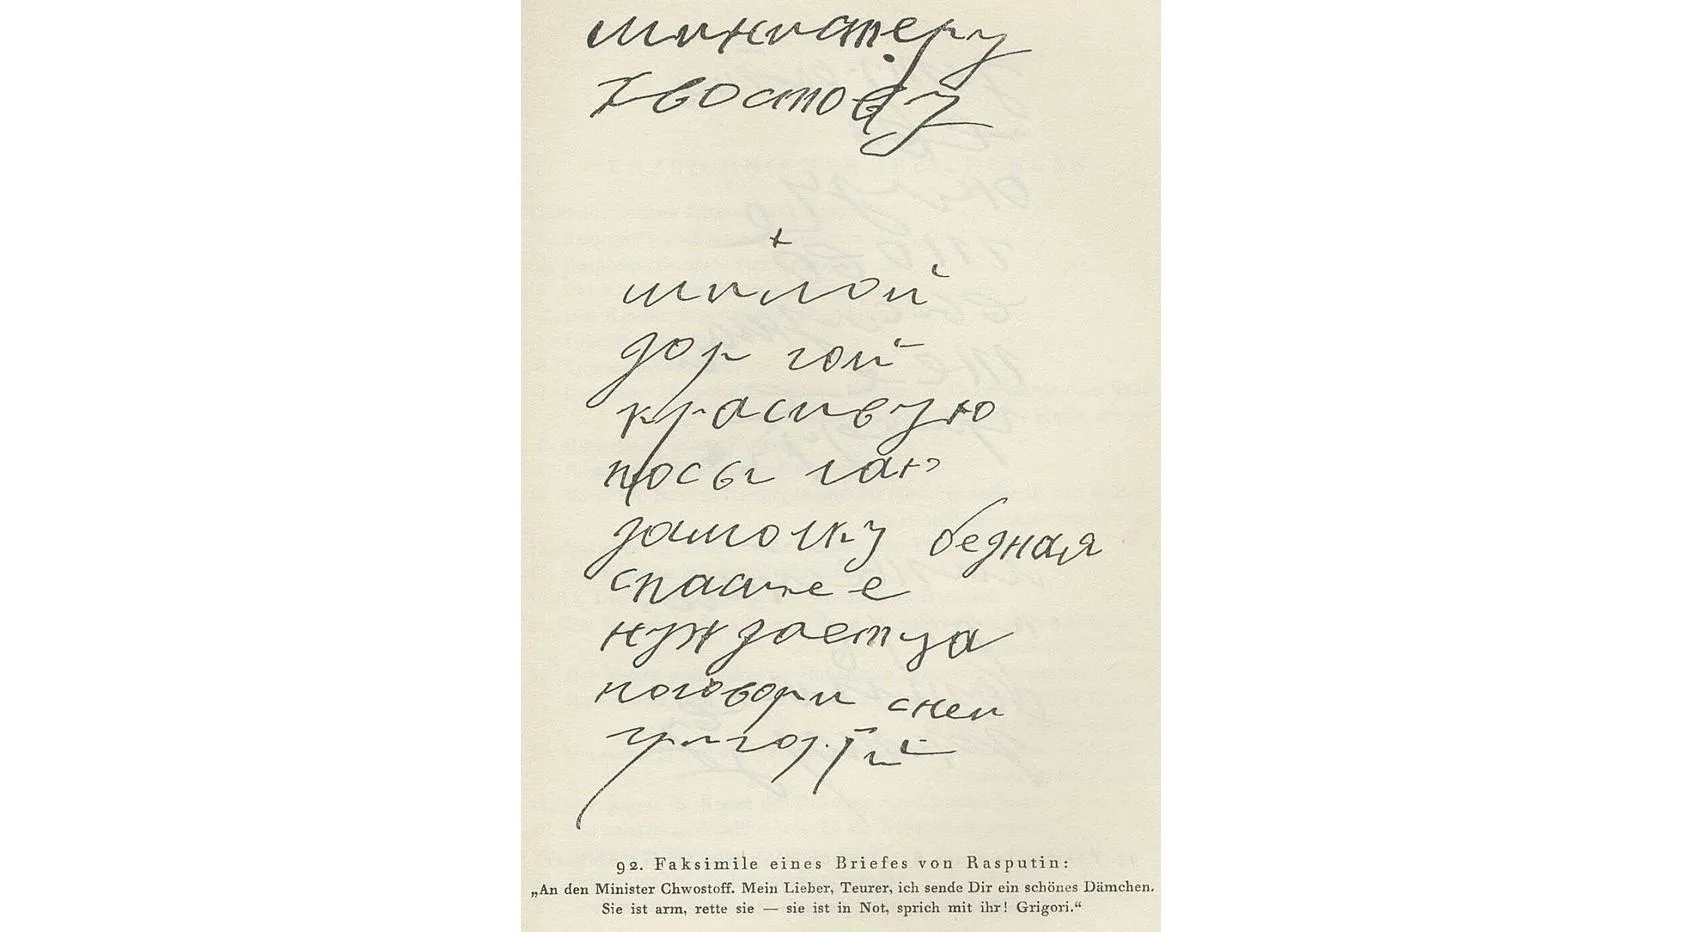 министеру
Хвостову
+
милой
дор гой
красивую
посы лаю
дамочку бедная
спасие е
нуждаетца
поговори сней
григорий
92. Faksimile eines Briefes von Rasputin:
„An den Minister Chwostoff. Mein Lieber, Teurer, ich sende Dir ein schönes Dämchen.
Sie ist arm, rette sie — sie ist in Not, sprich mit ihr! Grigori.“